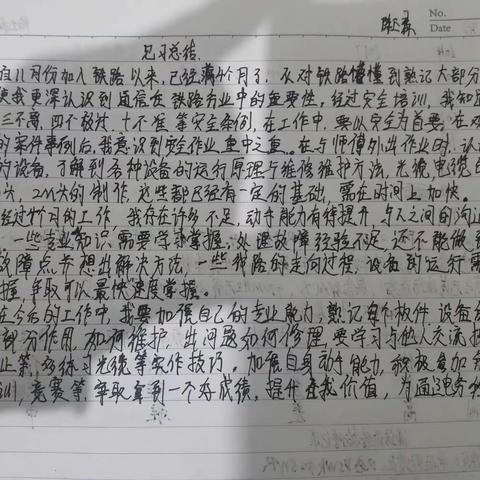 No.
Date
见习总结
11月份加入铁路以来,已经满4个月了,从对铁路懵懂到熟记大部分
我更深认识到通信在铁路行业中的重要性,经过安全培训,我知道
三不离,四个校对,十不准等安全条例,在工作中,要以安全为首要,在
的案件事例后,我意识到安全作业重中之重。在与师傅外出作业时,认
的设备,了解到各种设备的运行原理与维修维护方法,光缆,电缆
头,2M头的制作,这些都已经有一定的基础,需在时间上加快。
经过4个月的工作,我存在许多不足,动手能力有待提升,与人之间的沟
,一些专业知识,需要学习掌握,处理故障经验不足,还不能做
故障点并想出解决方法,一些线路的走向过程,设备到运行需
握,争取可以最快速度掌握。
在今后的工作中,我要加强自己的专业能力,熟记各种板件 设备
部分作用,如何维护,出问题如何修理,要学习与他人交流
止等,多练习光缆等实作技巧。加强自身动手能力,积极参加
训,竞赛等,争取拿到一个好成绩,提升自我价值,为通信